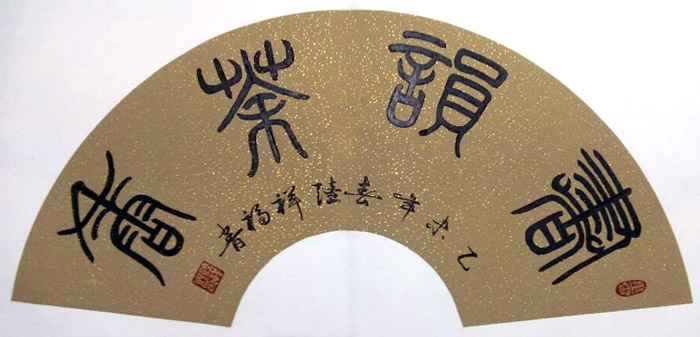 書韻茶香
乙未年春陸祥福書